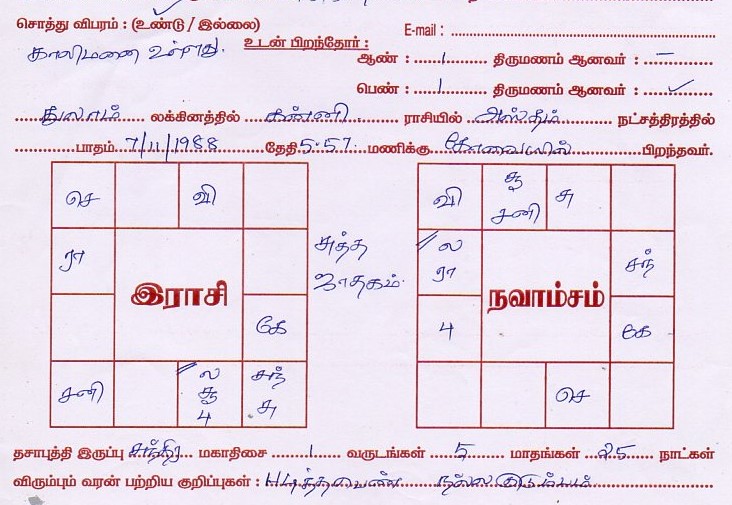 சொத்து விபரம் : (உண்டு / இல்லை)
E-mail :
காலிமனை உள்ளது. உடன் பிறந்தோர் :
ஆண் : 1 திருமணம் ஆனவர் : –
பெண் : 1 திருமணம் ஆனவர் : ✓
துலாம் லக்கினத்தில் கன்னி ராசியில் அஸ்தம் நட்சத்திரத்தில்
பாதம் 7/11/1988 தேதி 5:57 மணிக்கு கோவையில் பிறந்தவர்.
செ வி
ரா
இராசி
கே
சனி ல சூ 4 சந் சு
சுத்த ஜாதகம்.
வி சூ சனி சு
ல ரா சந்
நவாம்சம்
4 கே
செ
தசாபுத்தி இருப்பு சந்திர மகாதிசை 1 வருடங்கள் 5 மாதங்கள் 25 நாட்கள்
விரும்பும் வரன் பற்றிய குறிப்புகள் : படித்தபெண் நல்லகுடும்பம்